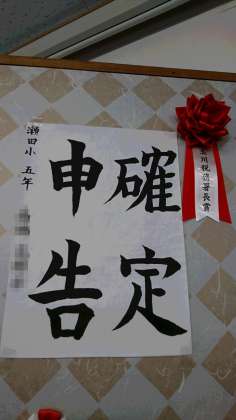 確定
申告
瀬田小 五年
川税務署長賞